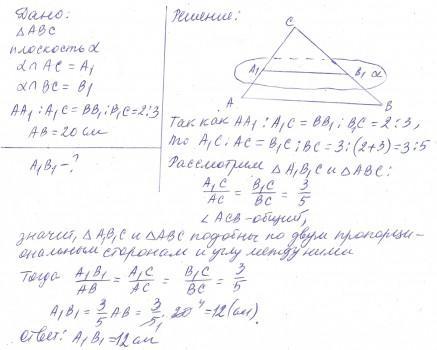 Дано:
△ABC
плоскость α
α∩AC = A₁
α∩BC = B₁
AA₁ : A₁C = BB₁ : B₁C = 2:3
AB = 20 см
A₁B₁ - ?
Решение:
C
A₁
B₁
α
A
B
Так как AA₁ : A₁C = BB₁ : B₁C = 2:3,
то A₁C : AC = B₁C : BC = 3 : (2+3) = 3:5
Рассмотрим △A₁B₁C и △ABC:
A₁C/AC = B₁C/BC = 3/5
∠ACB - общий,
значит, △A₁B₁C и △ABC подобны по двум пропорци-
ональным сторонам и углу между ними
Тогда A₁B₁/AB = A₁C/AC = B₁C/BC = 3/5
A₁B₁ = 3/5 AB = 3/5 · 20 4 = 12 (см)
Ответ: A₁B₁ = 12 см